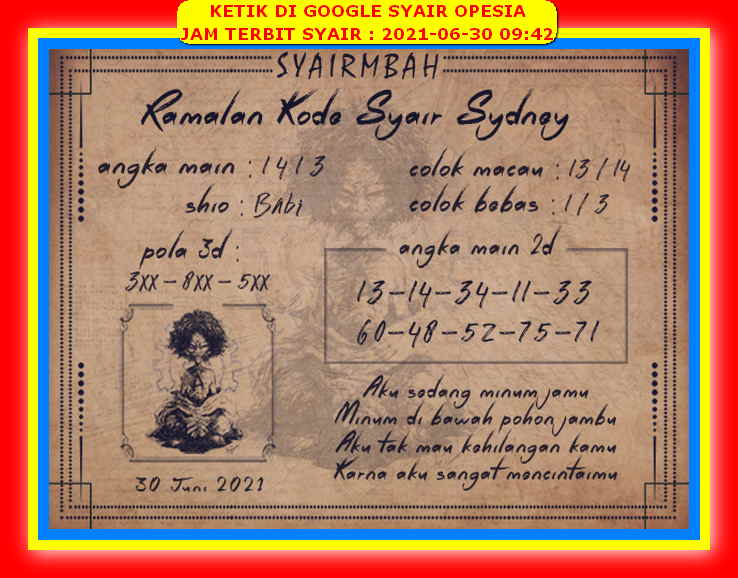 KETIK DI GOOGLE SYAIR OPESIA
JAM TERBIT SYAIR : 2021-06-30 09:42
SYAIRMBAH
Ramalan Kode Syair Sydney
angka main : 1 4 1 3
colok macau : 13 / 14
shio : BAbi
colok bebas : 1 / 3
pola 3d :
3XX - 8XX - 5XX
angka main 2d
13-14-34-11-33
60-48-52-75-71
Aku sedang minum jamu
Minum di bawah pohon jambu
Aku tak mau kehilangan kamu
Karna aku sangat mencintaimu
30 Juni 2021